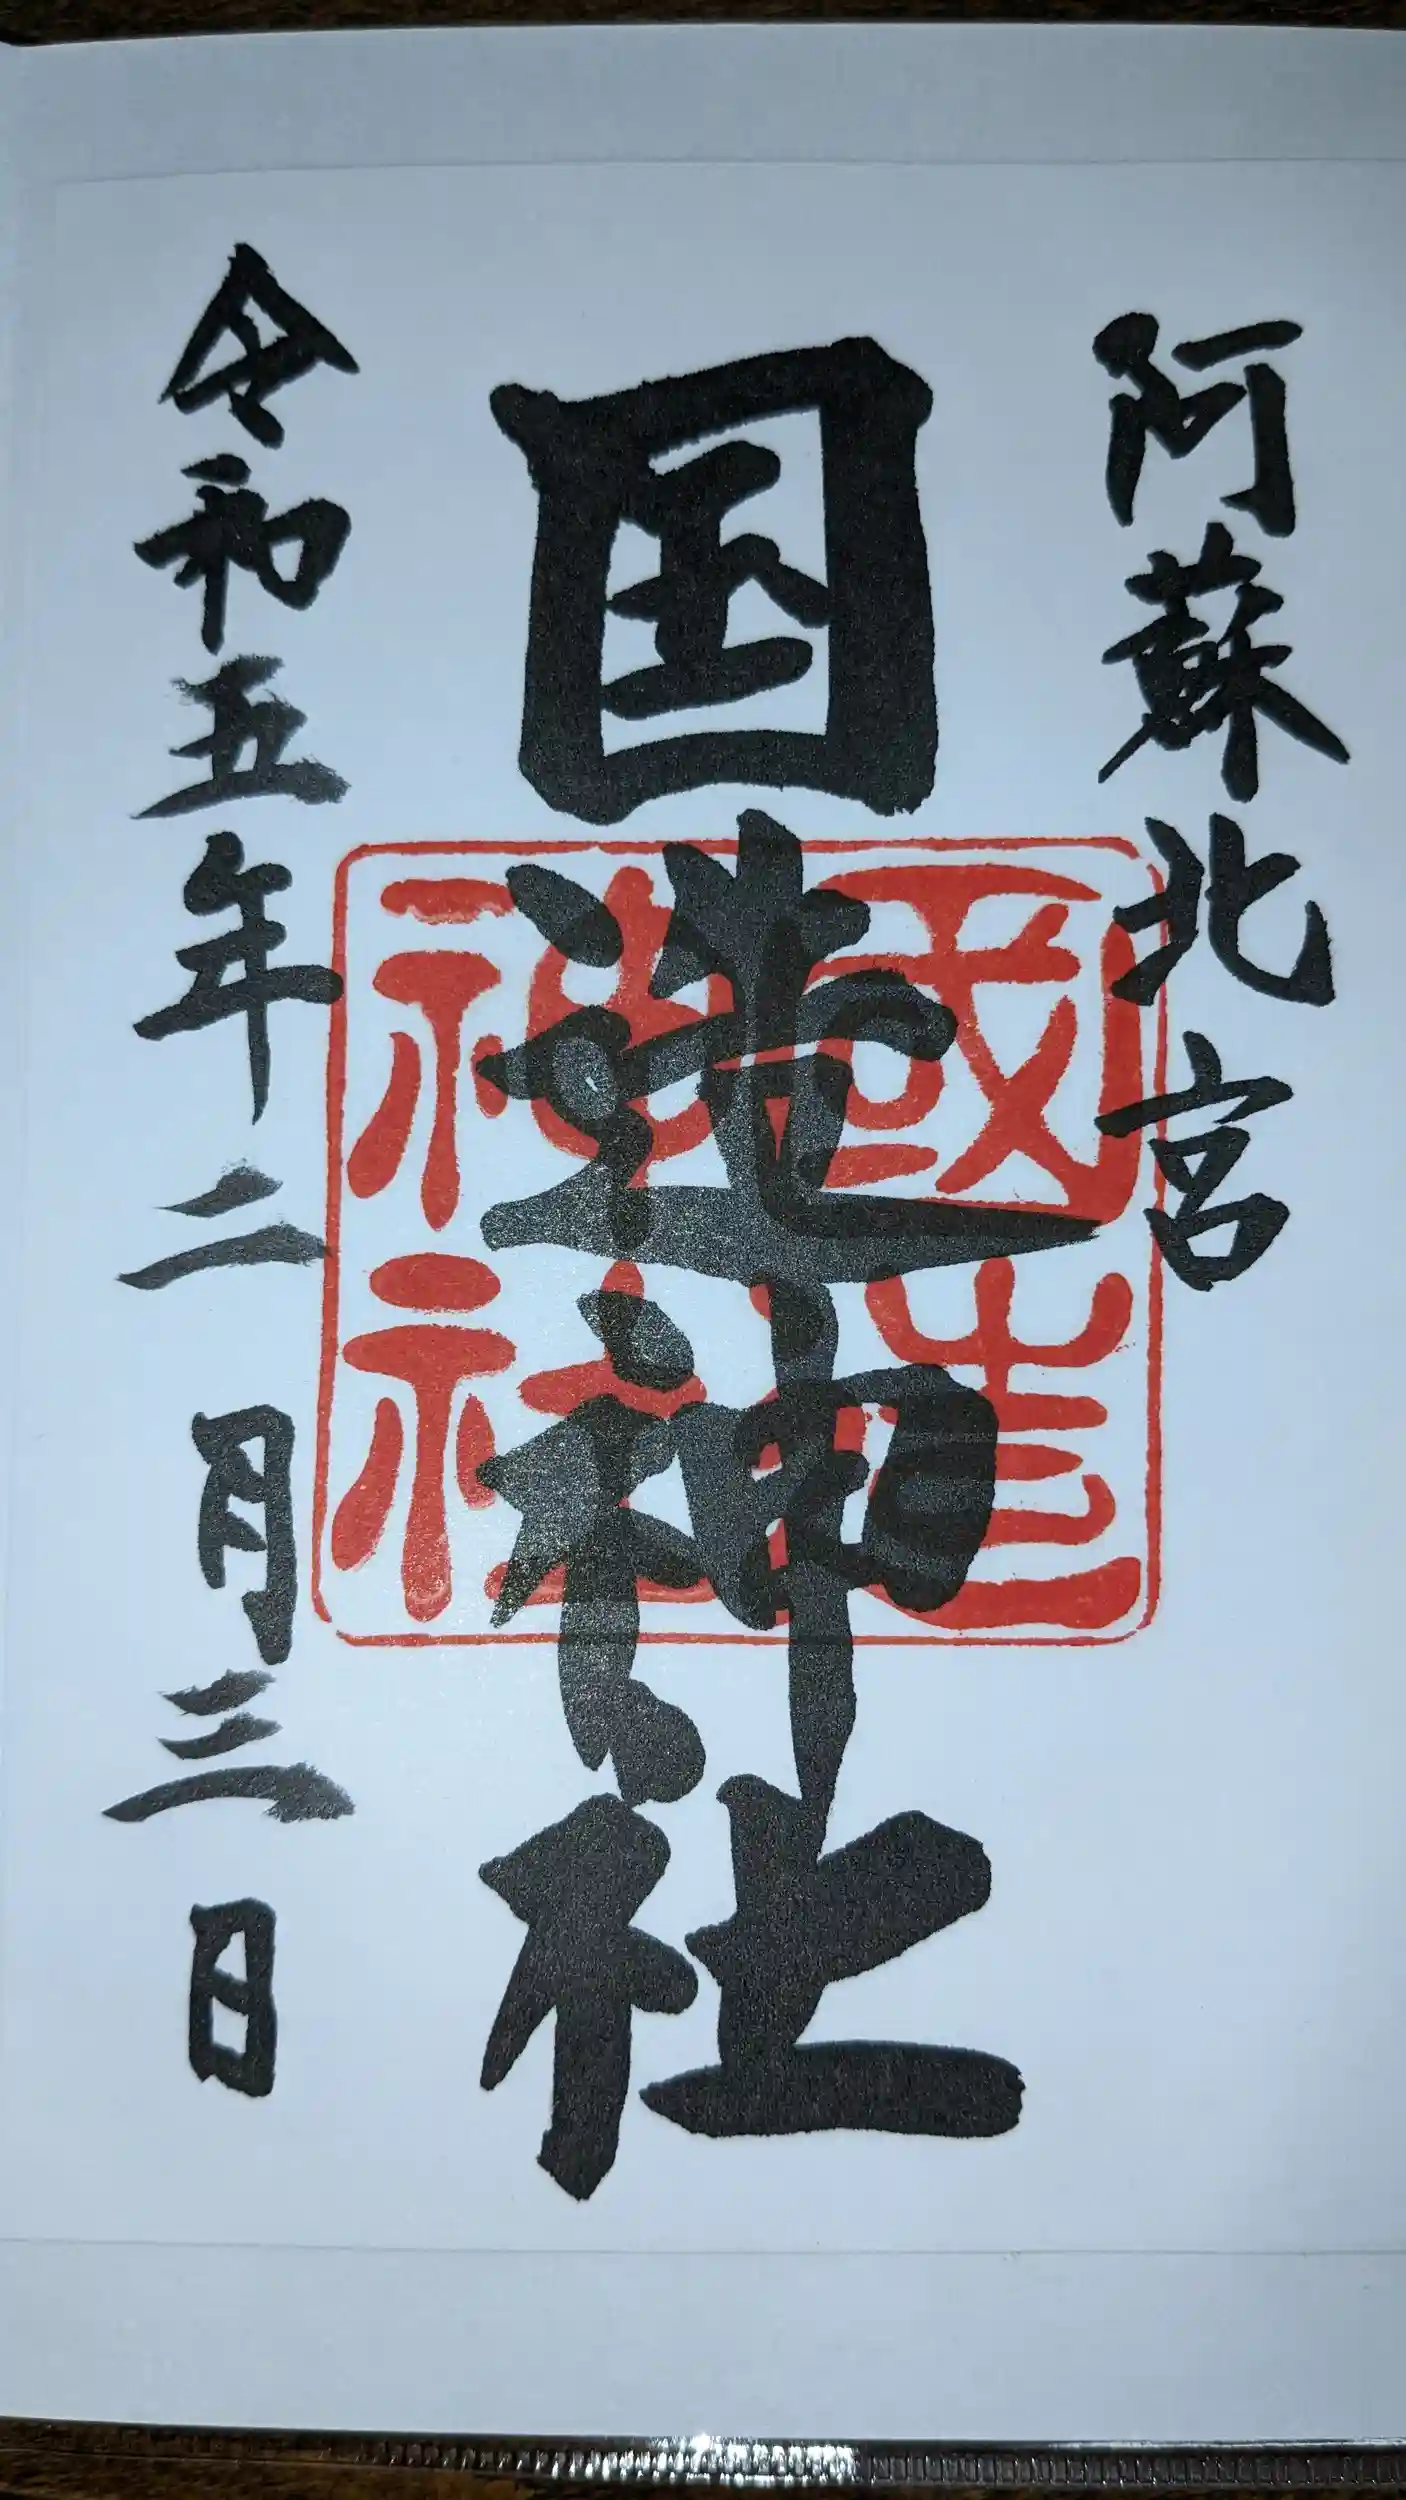 阿蘇北宮
国造神社
國造
神社
令和五年二月三日